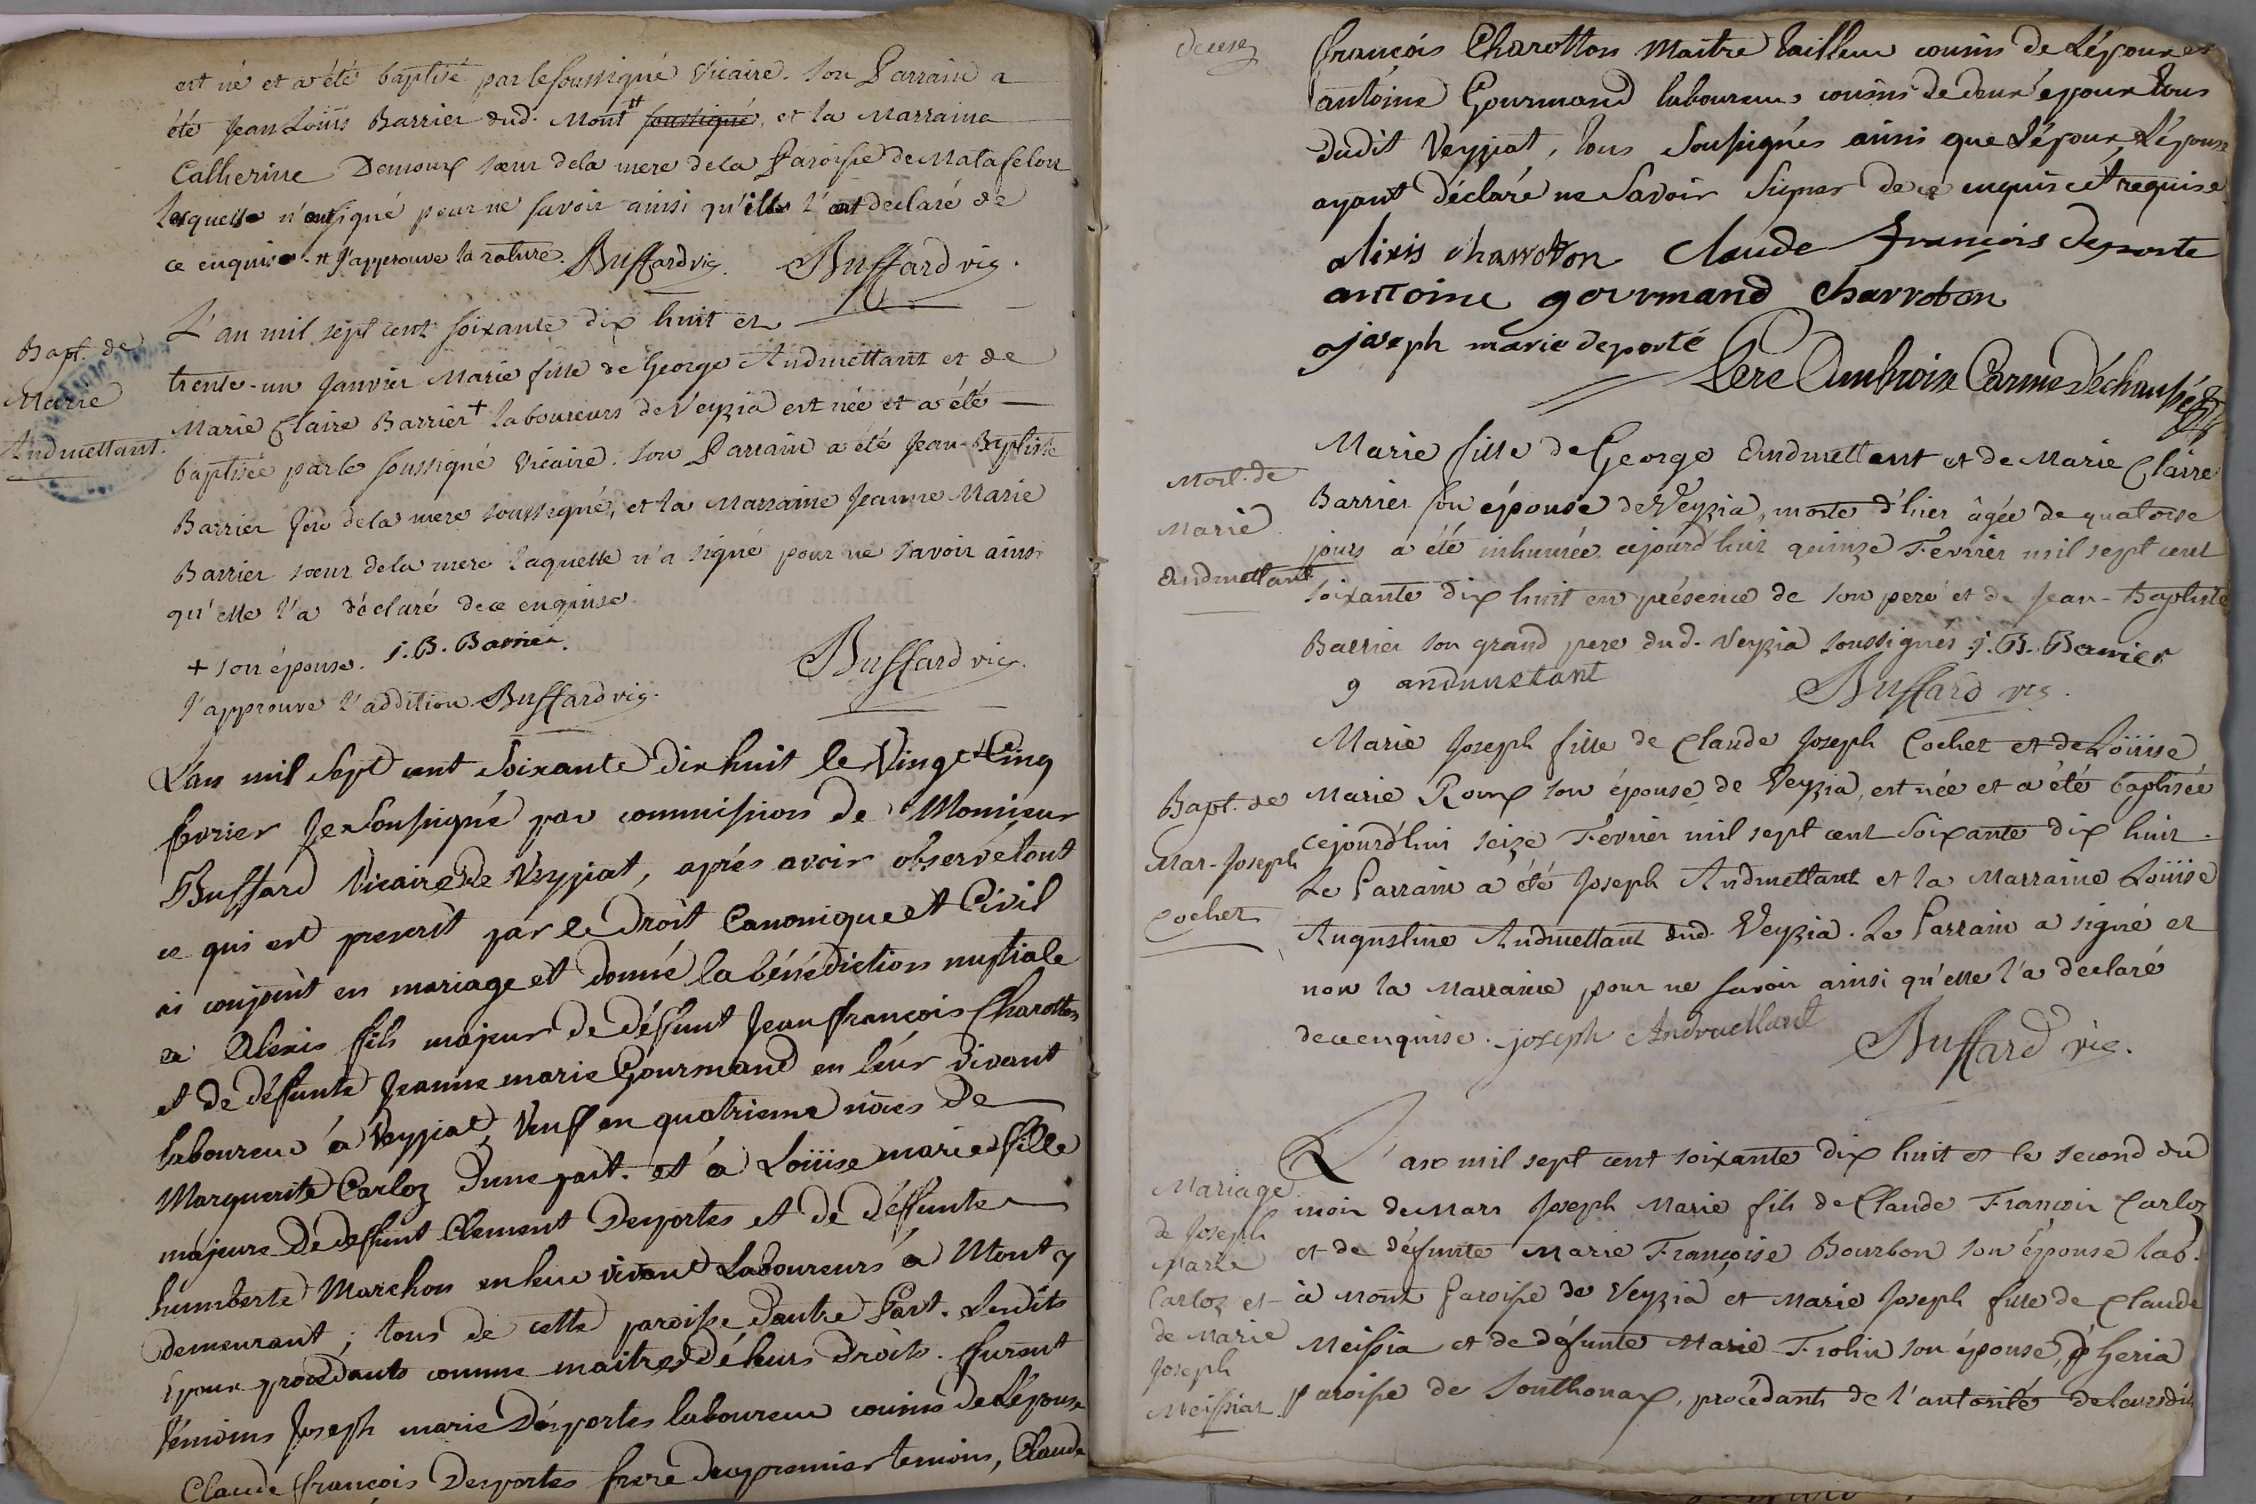 est né et a été baptisé par le soussigné Vicaire. son Parrain a
été Jean Loüis Barrier dud. Mont ⸸ soussigné, et la Marraine
Catherine Demoux sœur de la mere de la Paroisse de Matafelon
laquelle n'a signé pour ne savoir ainsi qu'elle l'a declaré de
ce enquise. ⸸ J'approuve la rature. Buffard vic. Buffard vic.
L'an mil sept cent soixante dix huit et
Bapt. de
Marie
Andmettant.
trente-un Janvier Marie fille de George Andmettant et de
Marie Claire Barrier + laboureurs de Veyzia est née et a été
baptisée par le soussigné Vicaire. son Parrain a été Jean-Baptiste
Barrier Pere de la mere soussigné, et la Marraine Jeanne Marie
Barrier sœur de la mere laquelle n'a signé pour ne savoir ainsi
qu'elle l'a déclaré de ce enquise.
+ son épouse. J. B. Barrier.
Buffard vic.
J'approuve l'addition Buffard vic.
L'an mil sept cent soixante dix huit le Vingt Cinq
fevrier Je soussigné par commission de Monsieur
Buffard Vicaire de Veyziat, aprés avoir observé tout
ce qui est prescrit par le droit Canonique et Civil
ai conjoint en mariage et donné la bénédiction nuptiale
a Alexis fils majeur de déffunt Jean françois Charotton
et de déffunte Jeanne marie Gourmand en leur vivant
laboureurs à Veyziat, Veuf en quatrieme nôces de
Marguerite Carloz d'une part. et à Loüise marie fille
majeure De deffunt Clement Desportes et de déffunte
humberte Marchon en leur vivant Laboureurs à Mont y
demeurant; tous de cette paroisse d'autre Part. Lesdits
Epoux procédants comme maitres dé leurs droits. ffurent
témoins Joseph marie Desportes laboureur cousin de L'épouse
Claude françois Desportes frere du premier temoins, Claude
françois Charotton Maitre tailleur cousin de L'époux et
antoine Gourmand laboureur cousin de deux époux tous
dudit Veyziat, tous soussignés ainsi que L'époux, L'épouse
ayant déclaré ne savoir signer de ce enquis et requise.
alixis charroton Claude François deporte
antoine gourmand charroton
joseph marie deporté
Pere Ambroise Carme Déchaussé
Mort. de
Marie
Andmettant
Marie fille de George Andmettant et de Marie Claire
Barrier son épouse de Veyzia, morte d'hier âgée de quatorse
jours a été inhumée cejourd'huir quinze Fevrier mil sept cent
soixante dix huit en présence de son pere et de Jean-Baptiste
Barrier son grand pere dud. Veyzia soussignés. J. B. Barrier
g andmetant Buffard vic.
Bapt. de
Mar-Joseph
Cochet
Marie Joseph fille de Claude Joseph Cochet et de Loüise
Marie Roux son épouse de Veyzia, est née et a été baptisée
cejourd'hui seize Fevrier mil sept cent soixante dix huit.
Le Parrain a été Joseph Andmettant et la Marraine Loüise
Augustine Andmettant dud. Veyzia. Le Parrain a signé et
non la Marraine pour ne savoir ainsi qu'elle l'a declaré
de ce enquise. joseph Andmettant Buffard vic.
Mariage
de Joseph
Marie
Carloz et
de Marie
Joseph
Meissiat
L'an mil sept cent soixante dix huit et le second du
mois de Mars Joseph Marie fils de Claude François Carloz
et de défunte Marie Françoise Bourbon son épouse lab.
à Mont Paroisse de Veyzia et Marie Joseph fille de Claude
Meissia et de défunte Marie Frolin son épouse, d'heria
Paroisse de Southonax, procédants de l'autorité de leursdits